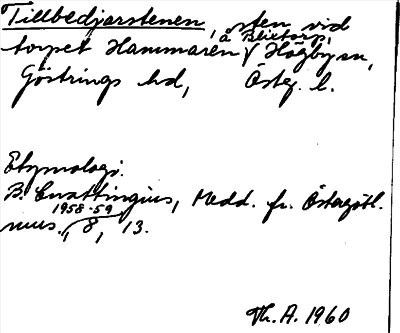 Tillbedjarstenen, sten vid
torpet Hammaren å Blixtorp, Högby sn,
Göstrings hd, Östg. l.
Etymologi:
B. Cnattingius, Medd. fr. Östergötl.
mus., 1958-59, 8, 13.
Th. A. 1960